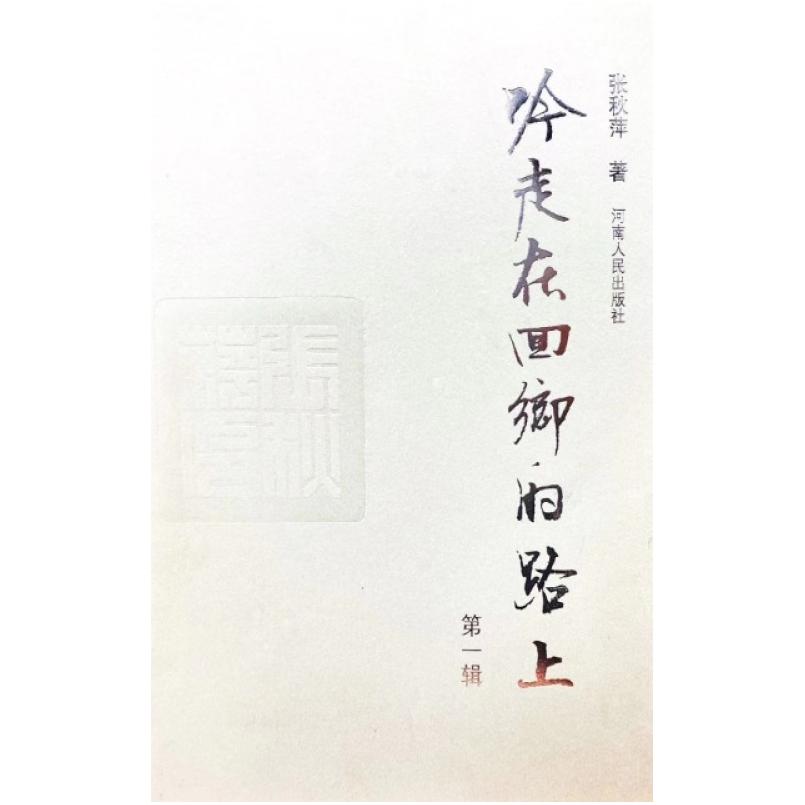 张秋萍 著 河南人民出版社
吟走在回鄉的路上
第一辑